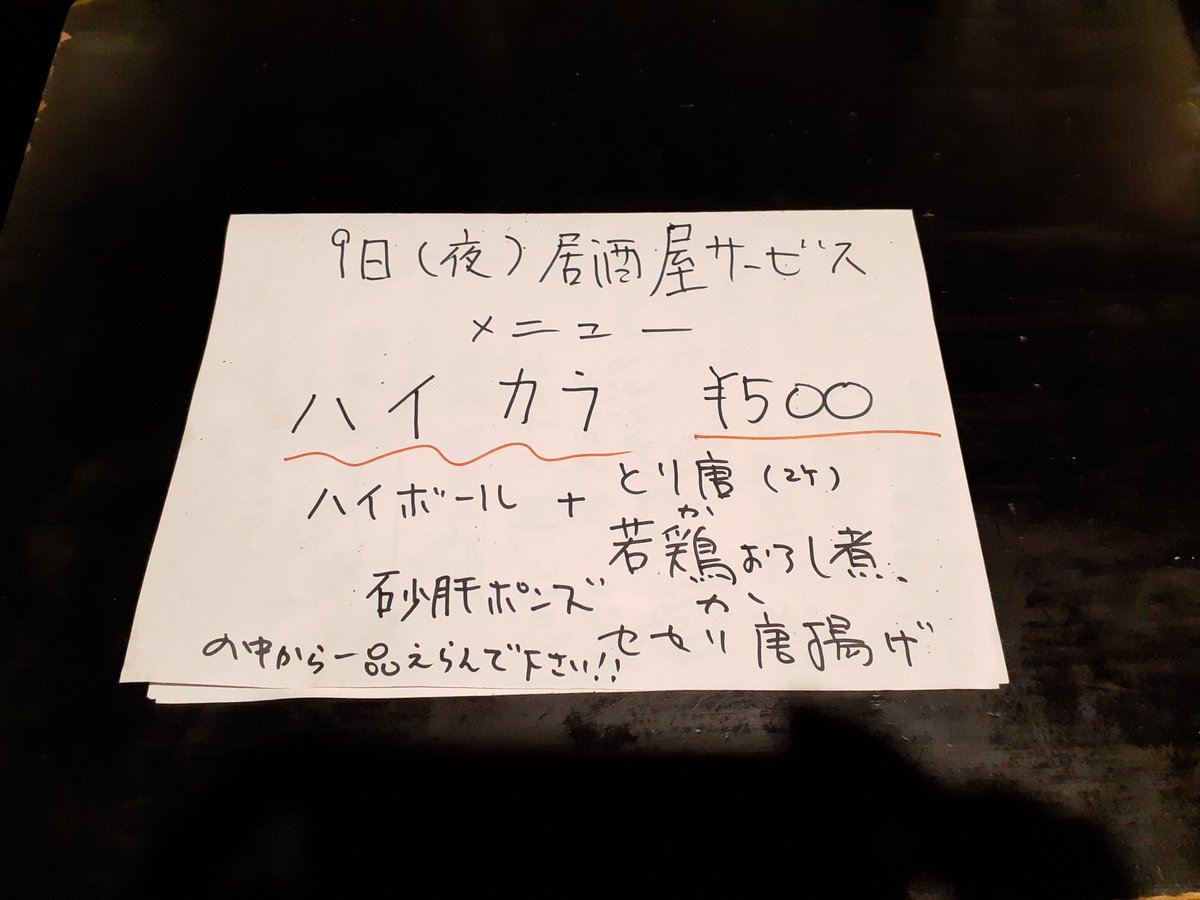 9日(夜)居酒屋サービス
メニュー
ハイカラ ¥500
ハイボール + とり唐(2ケ)
か
若鶏おろし煮、
砂肝ポンズ か、
セセリ唐揚げ
の中から一品えらんで下さい!!